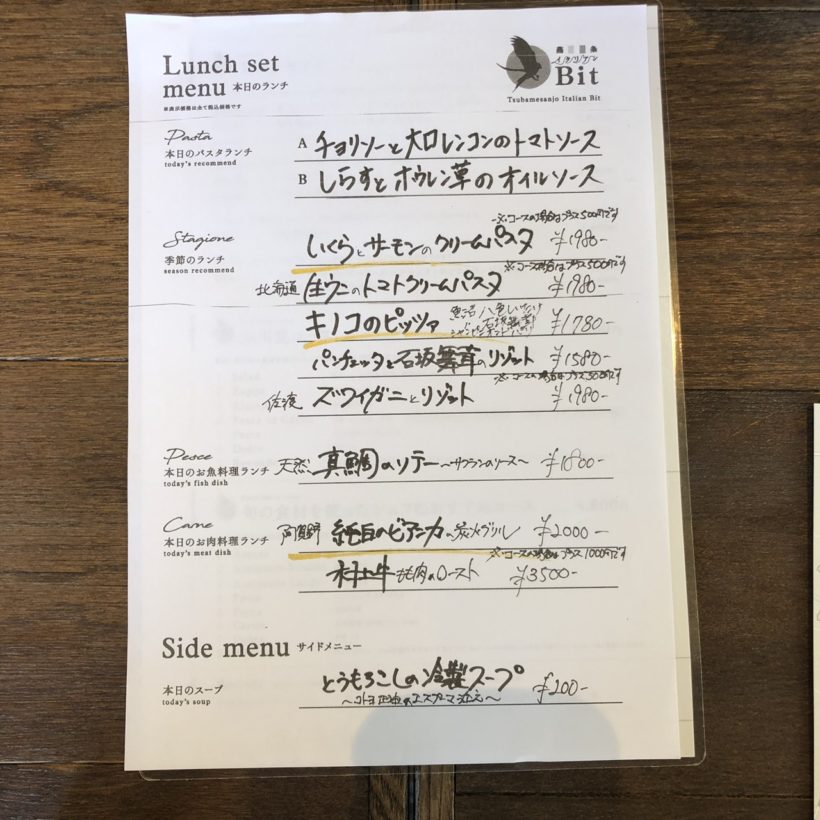 Lunch set
menu 本日のランチ
※表示価格は全て税込価格です
燕三条
イタリアン
Bit
Tsubamesanjo Italian Bit
Pasta
本日のパスタランチ
today's recommend
A チョリソーと大口レンコンのトマトソース
B しらすとホウレン草のオイルソース
※コースの場合はプラス500円です
Stagione
季節のランチ
season recommend
いくらとサーモンのクリームパスタ ¥1980-
※コースの場合はプラス500円です
北海道 生ウニのトマトクリームパスタ ¥1980-
キノコのピッツァ 魚沼八色しいたけ 石坂舞茸 ¥1780-
パンチェッタと石坂舞茸のリゾット ¥1580-
※コースの場合はプラス500円です
佐渡 ズワイガニとリゾット ¥1980-
Pesce
本日のお魚料理ランチ
today's fish dish
天然 真鯛のソテー ～サフランのソース～ ¥1800-
Carne
本日のお肉料理ランチ
today's meat dish
阿賀野 純白のビアンカの炭火グリル ¥2000-
※コースの場合はプラス1000円です
村上牛 もも肉のロースト ¥3500-
Side menu サイドメニュー
本日のスープ
today's soup
とうもろこしの冷製スープ ¥200-